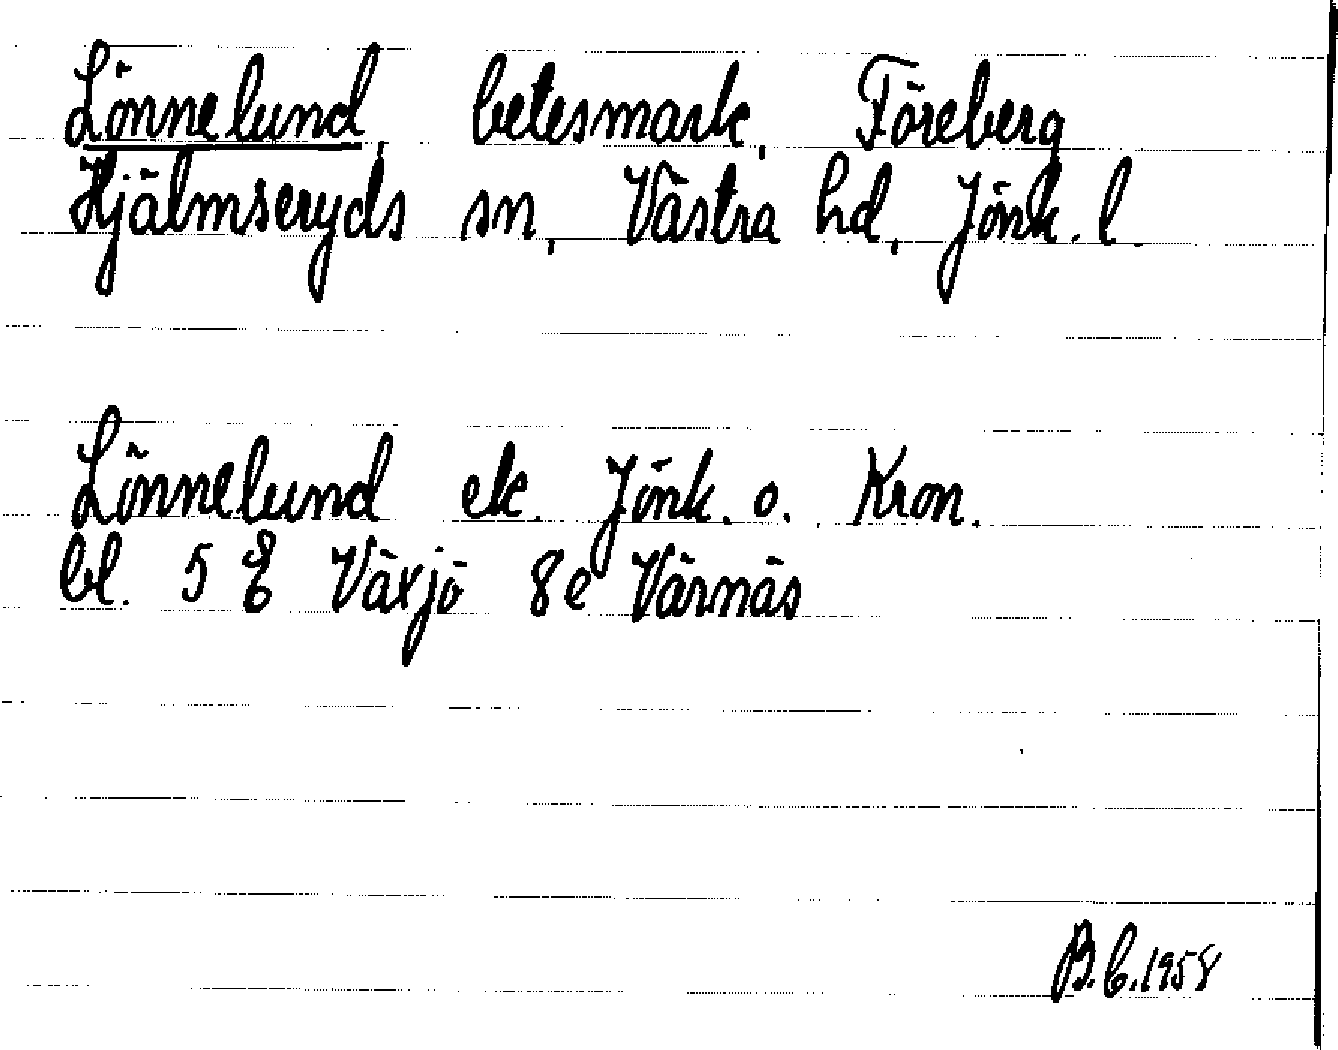 Lönnelund, betesmark, Föreberg
Hjälmseryds sn, Västra hd, Jönk. l.
Lönnelund ek. Jönk. o. Kron.
bl. 5 E Växjö 8e Värnäs
B.C. 1958